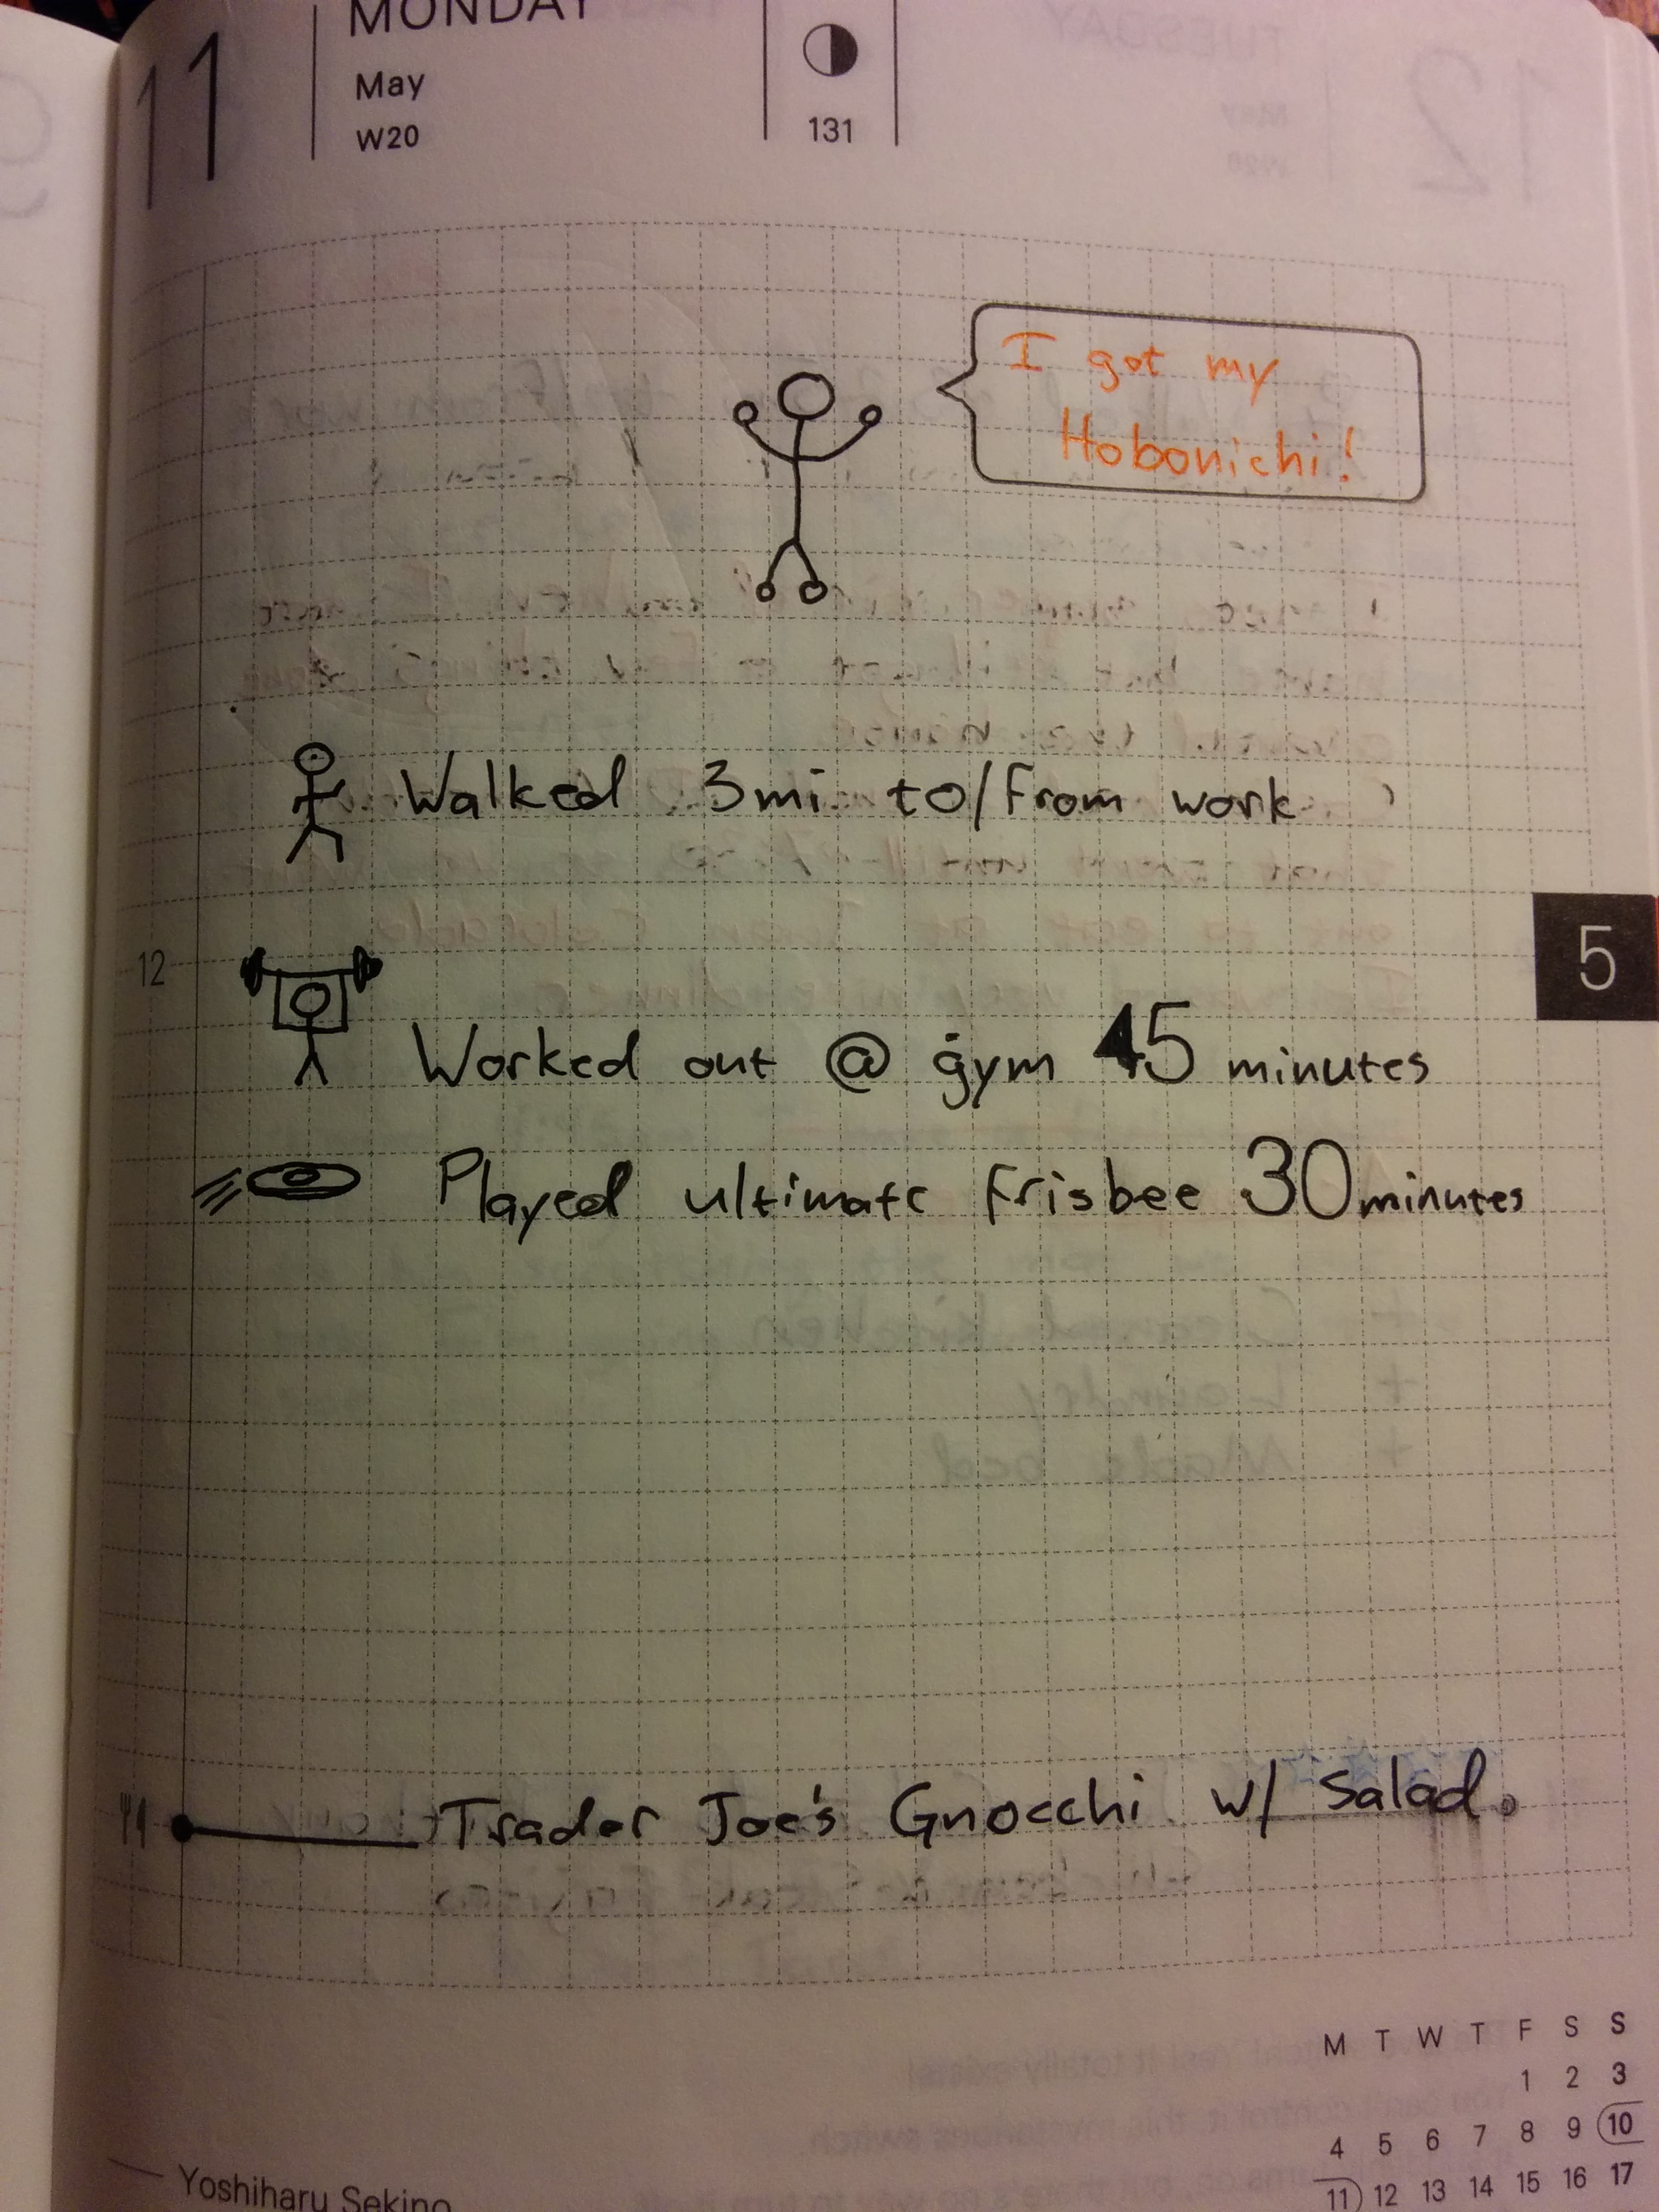 11
MONDAY
May
W20
131
I got my
Hobonichi!
Walked 3mi to/from work
5
12
Worked out @ gym 45 minutes
Played ultimate frisbee 30 minutes
Trader Joe's Gnocchi w/ Salad.
M T W T F S S
1 2 3
4 5 6 7 8 9 10
11 12 13 14 15 16 17
Yoshiharu Sekino